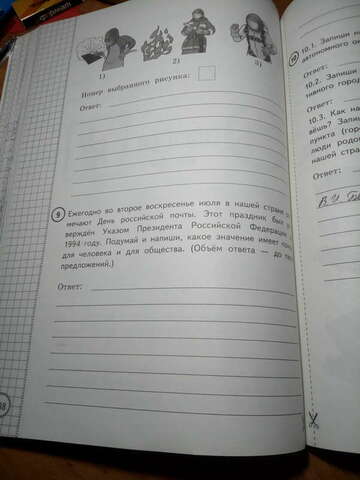 1)
2)
3)
Номер выбранного рисунка:
Ответ:
9
Ежегодно во второе воскресенье июля в нашей стране
мечают День российской почты. Этот праздник был
верждён Указом Президента Российской Федерации
1994 году. Подумай и напиши, какое значение имеет
для человека и для общества. (Объём ответа — до
предложений.)
Ответ:
10
10.1. Запиши
автономного
Ответ:
10.2. Запиши
тивного горо
Ответ:
10.3. Как на
вёшь? Запи
пункта (гор
люди родо
нашей стра
Ответ: